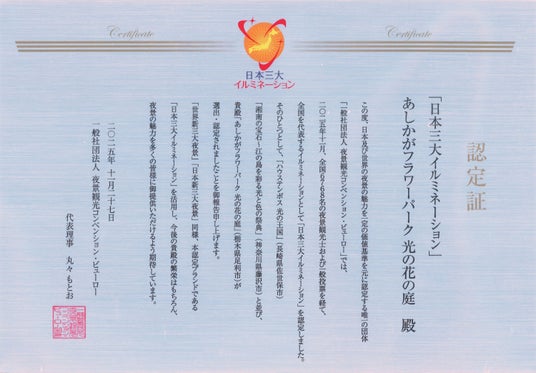 Certificate
Certificate
日本三大
イルミネーション
認定証
「日本三大イルミネーション」
あしかがフラワーパーク 光の花の庭 殿
この度、日本及び世界の夜景の魅力を一定の価値基準を元に認定する唯一の団体
「一般社団法人 夜景観光コンベンション・ビューロー」では、
二〇二五年十月、全国6768名の夜景観光士および一般投票を経て、
全国を代表するイルミネーションとして「日本三大イルミネーション」を認定しました。
そのひとつとして、「ハウステンボス 光の王国」（長崎県佐世保市）
「湘南の宝石～江の島を彩る光と色の祭典」（神奈川県藤沢市）と並び、
貴殿、「あしかがフラワーパーク 光の花の庭」（栃木県足利市）が
選出・認定されましたことを御報告申し上げます。
「世界新三大夜景」「日本新三大夜景」同様、本認定ブランドである
「日本三大イルミネーション」を活用し、今後の貴殿の繁栄はもちろん、
夜景の魅力を多くの皆様に御提供いただけるよう期待しています。
二〇二五年 十一月二十七日
一般社団法人 夜景観光コンベンション・ビューロー
代表理事 丸々もとお